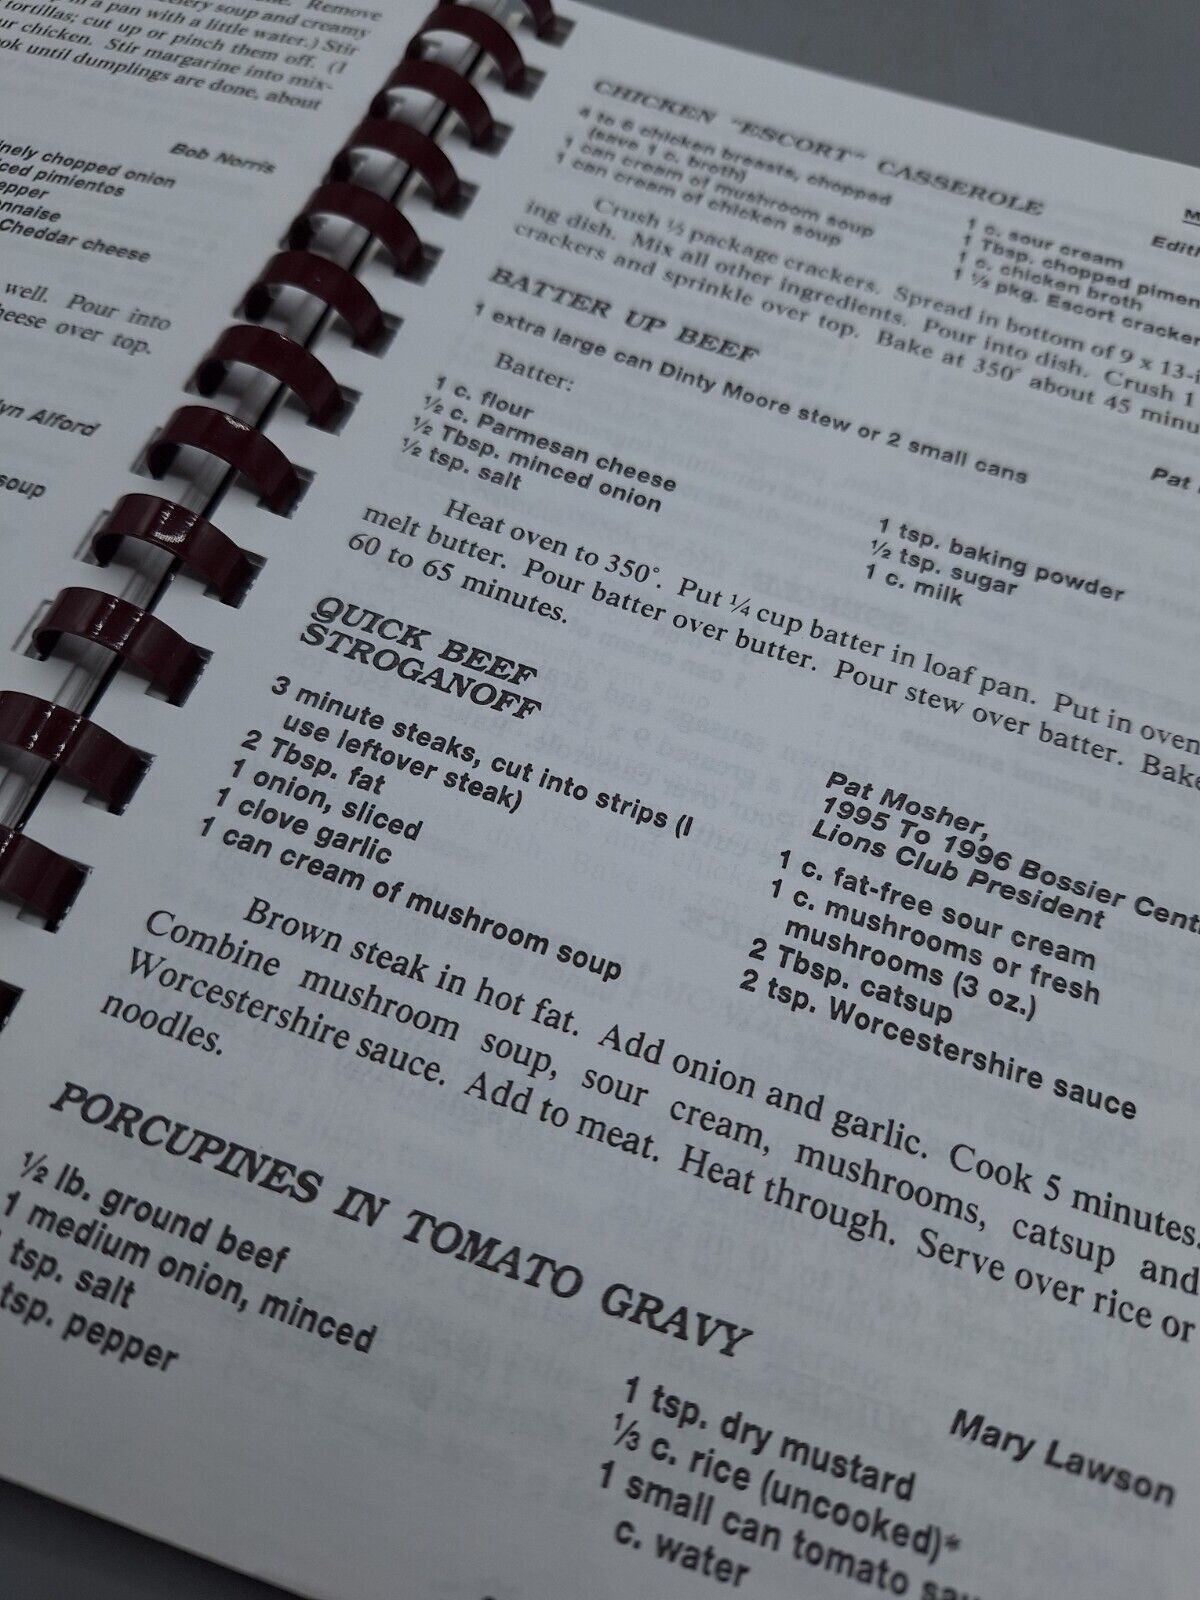 Remove
in a pan with a little water.) Stir
tortillas; cut up or pinch them off. (I
chicken. Stir margarine into mix-
until dumplings are done, about
Bob Norris
chopped onion
pimientos
Cheddar cheese
well. Pour into
over top.
Alford
soup
CHICKEN "ESCORT" CASSEROLE
4 to 6 chicken breasts, chopped
(save 1 c. broth)
1 can cream of mushroom soup
1 can cream of chicken soup
1 c. sour cream
1 Tbsp. chopped
1 c. chicken broth
1 ⅓ pkg. Escort
Crush ⅓ package crackers. Spread in bottom of 9 x
ing dish. Mix all other ingredients. Pour into dish. Crush 1
crackers and sprinkle over top. Bake at 350° about 45
BATTER UP BEEF
Pat
1 extra large can Dinty Moore stew or 2 small cans
Batter:
1 c. flour
½ c. Parmesan cheese
½ Tbsp. minced onion
½ tsp. salt
1 tsp. baking powder
½ tsp. sugar
1 c. milk
Heat oven to 350°. Put ¼ cup batter in loaf pan. Put in oven
melt butter. Pour batter over butter. Pour stew over batter. Bake
60 to 65 minutes.
QUICK BEEF
STROGANOFF
Pat Mosher,
1995 To 1996 Bossier
Lions Club President
3 minute steaks, cut into strips (I
use leftover steak)
2 Tbsp. fat
1 onion, sliced
1 clove garlic
1 can cream of mushroom soup
1 c. fat-free sour cream
1 c. mushrooms or fresh
mushrooms (3 oz.)
2 Tbsp. catsup
2 tsp. Worcestershire sauce
Brown steak in hot fat. Add onion and garlic. Cook 5 minutes.
Combine mushroom soup, sour cream, mushrooms, catsup and
Worcestershire sauce. Add to meat. Heat through. Serve over rice or
noodles.
PORCUPINES IN TOMATO GRAVY
Mary Lawson
½ lb. ground beef
1 medium onion, minced
tsp. salt
tsp. pepper
1 tsp. dry mustard
⅓ c. rice (uncooked)*
1 small can tomato
c. water